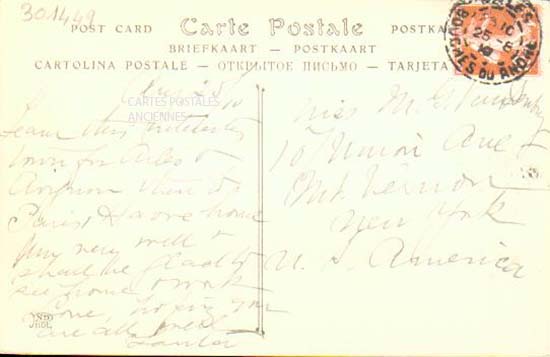 301449
POST CARD Carte Postale POSTKA
BRIEFKAART — POSTKAART
CARTOLINA POSTALE — ОТКРЫТОЕ ПИСЬМО — TARJETA
BOUCHES DU RHONE
25-6
CARTES POSTALES
ANCIENNES
Leave this
town for Arles &
Avignon then to
Paris & home
Am very well &
shall be glad to
see home & work
hoping you
are all well
Miss M. G.
10 Union Ave
Mt. Vernon
New York
U. S. America